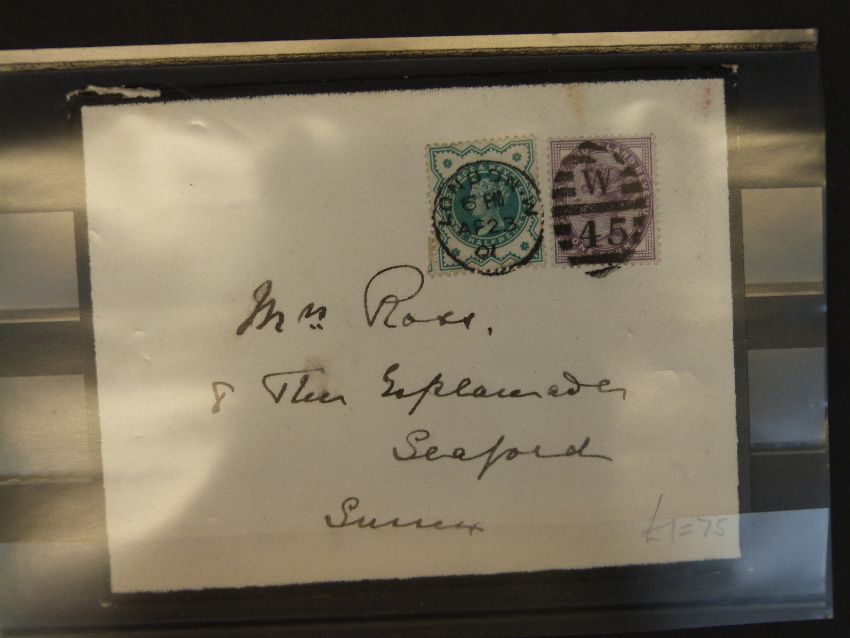 LONDON.W
6 PM
AP 23
01
HALFPENNY
LAND REVE
ONE
W
45
Mrs Ross.
8 The Esplanade
Seaford
Sussex
£1=75